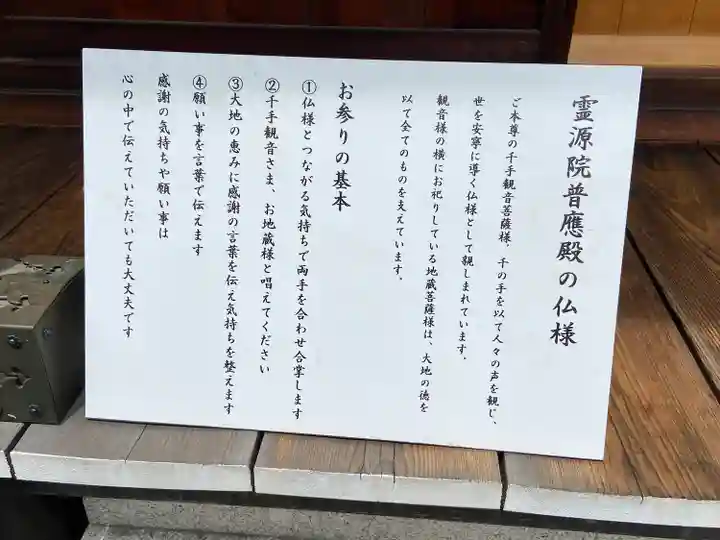 霊源院普應殿の仏様
ご本尊の千手観音菩薩様、千の手を以て人々の声を観じ、
世を安寧に導く仏様として親しまれています。
観音様の横にお祀りしている地蔵菩薩様は、大地の徳を
以て全てのものを支えています。
お参りの基本
①仏様とつながる気持ちで両手を合わせ合掌します
②千手観音さま、お地蔵様と唱えてください
③大地の恵みに感謝の言葉を伝え気持ちを整えます
④願い事を言葉で伝えます
感謝の気持ちや願い事は
心の中で伝えていただいても大丈夫です